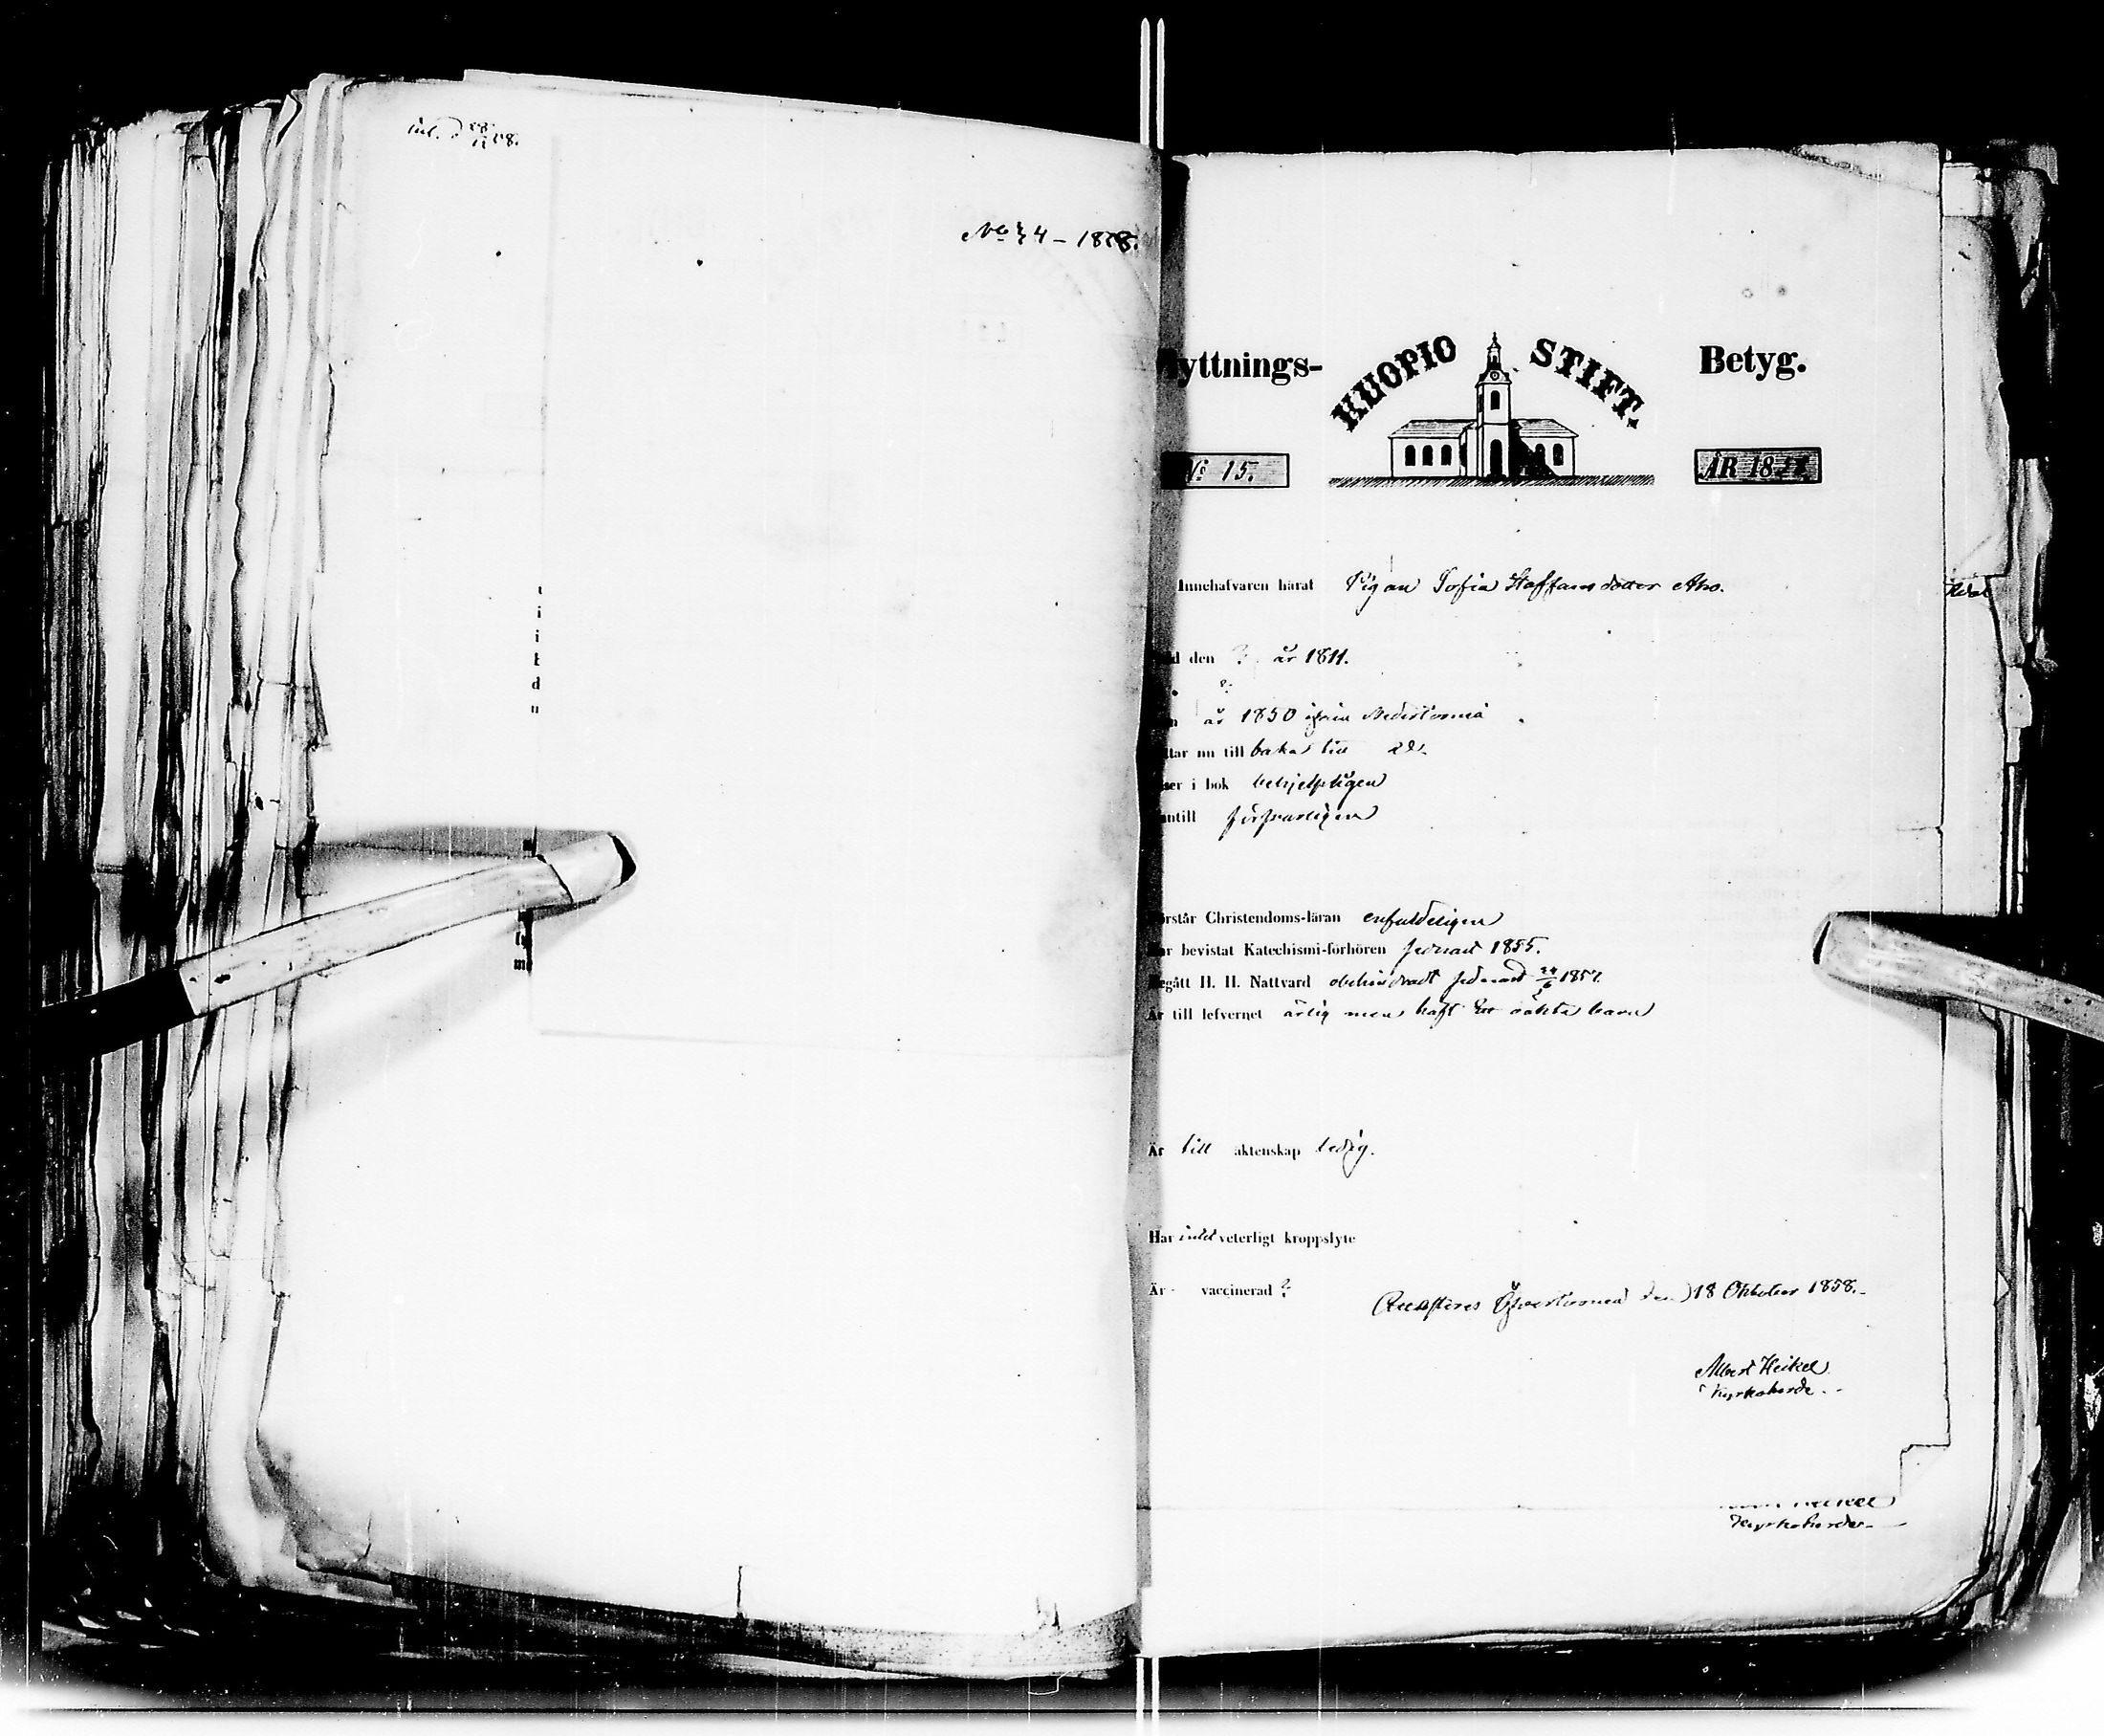 inl. d 28/11 58.
No 34 – 1858.
yttnings- KUOPIO STIFT. Betyg.
No 15. ÅR 1858.
Innehafvaren härat Pigan Sofia Staffansdotter Aho.
d den ? år 1811.
n år 1850 ifrån Nedertorneå
ttar nu till baka till
ser i bok behjelpligen
ntill försvarligen
örstår Christendoms-läran enfaldeligen
ar bevistat Katechismi-förhören sednast 1855.
egått H. H. Nattvard obehindradt sednast 24/6 1857.
Är till lefvernet ärlig men haft Ett oäkta barn
Är till äktenskap ledig.
Har intet veterligt kroppslyte
Är vaccinerad ?
Öfvertorneå den 18 Oktober 1858.
Albert Heikel
Kyrkoherde.
Heikel
Kyrkoherde.